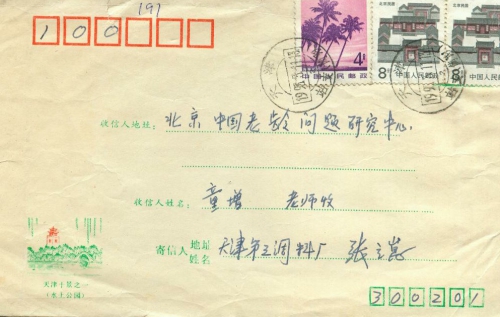 191
100
4分
中国人民邮政
8分
中国人民邮政
8分
中国人民邮
收信人地址: 北京 中国老龄问题研究中心
收信人姓名: 童增 老师收
寄信人 地址 姓名 天津第三调料厂 张
天津十景之一
(水上公园)
300201